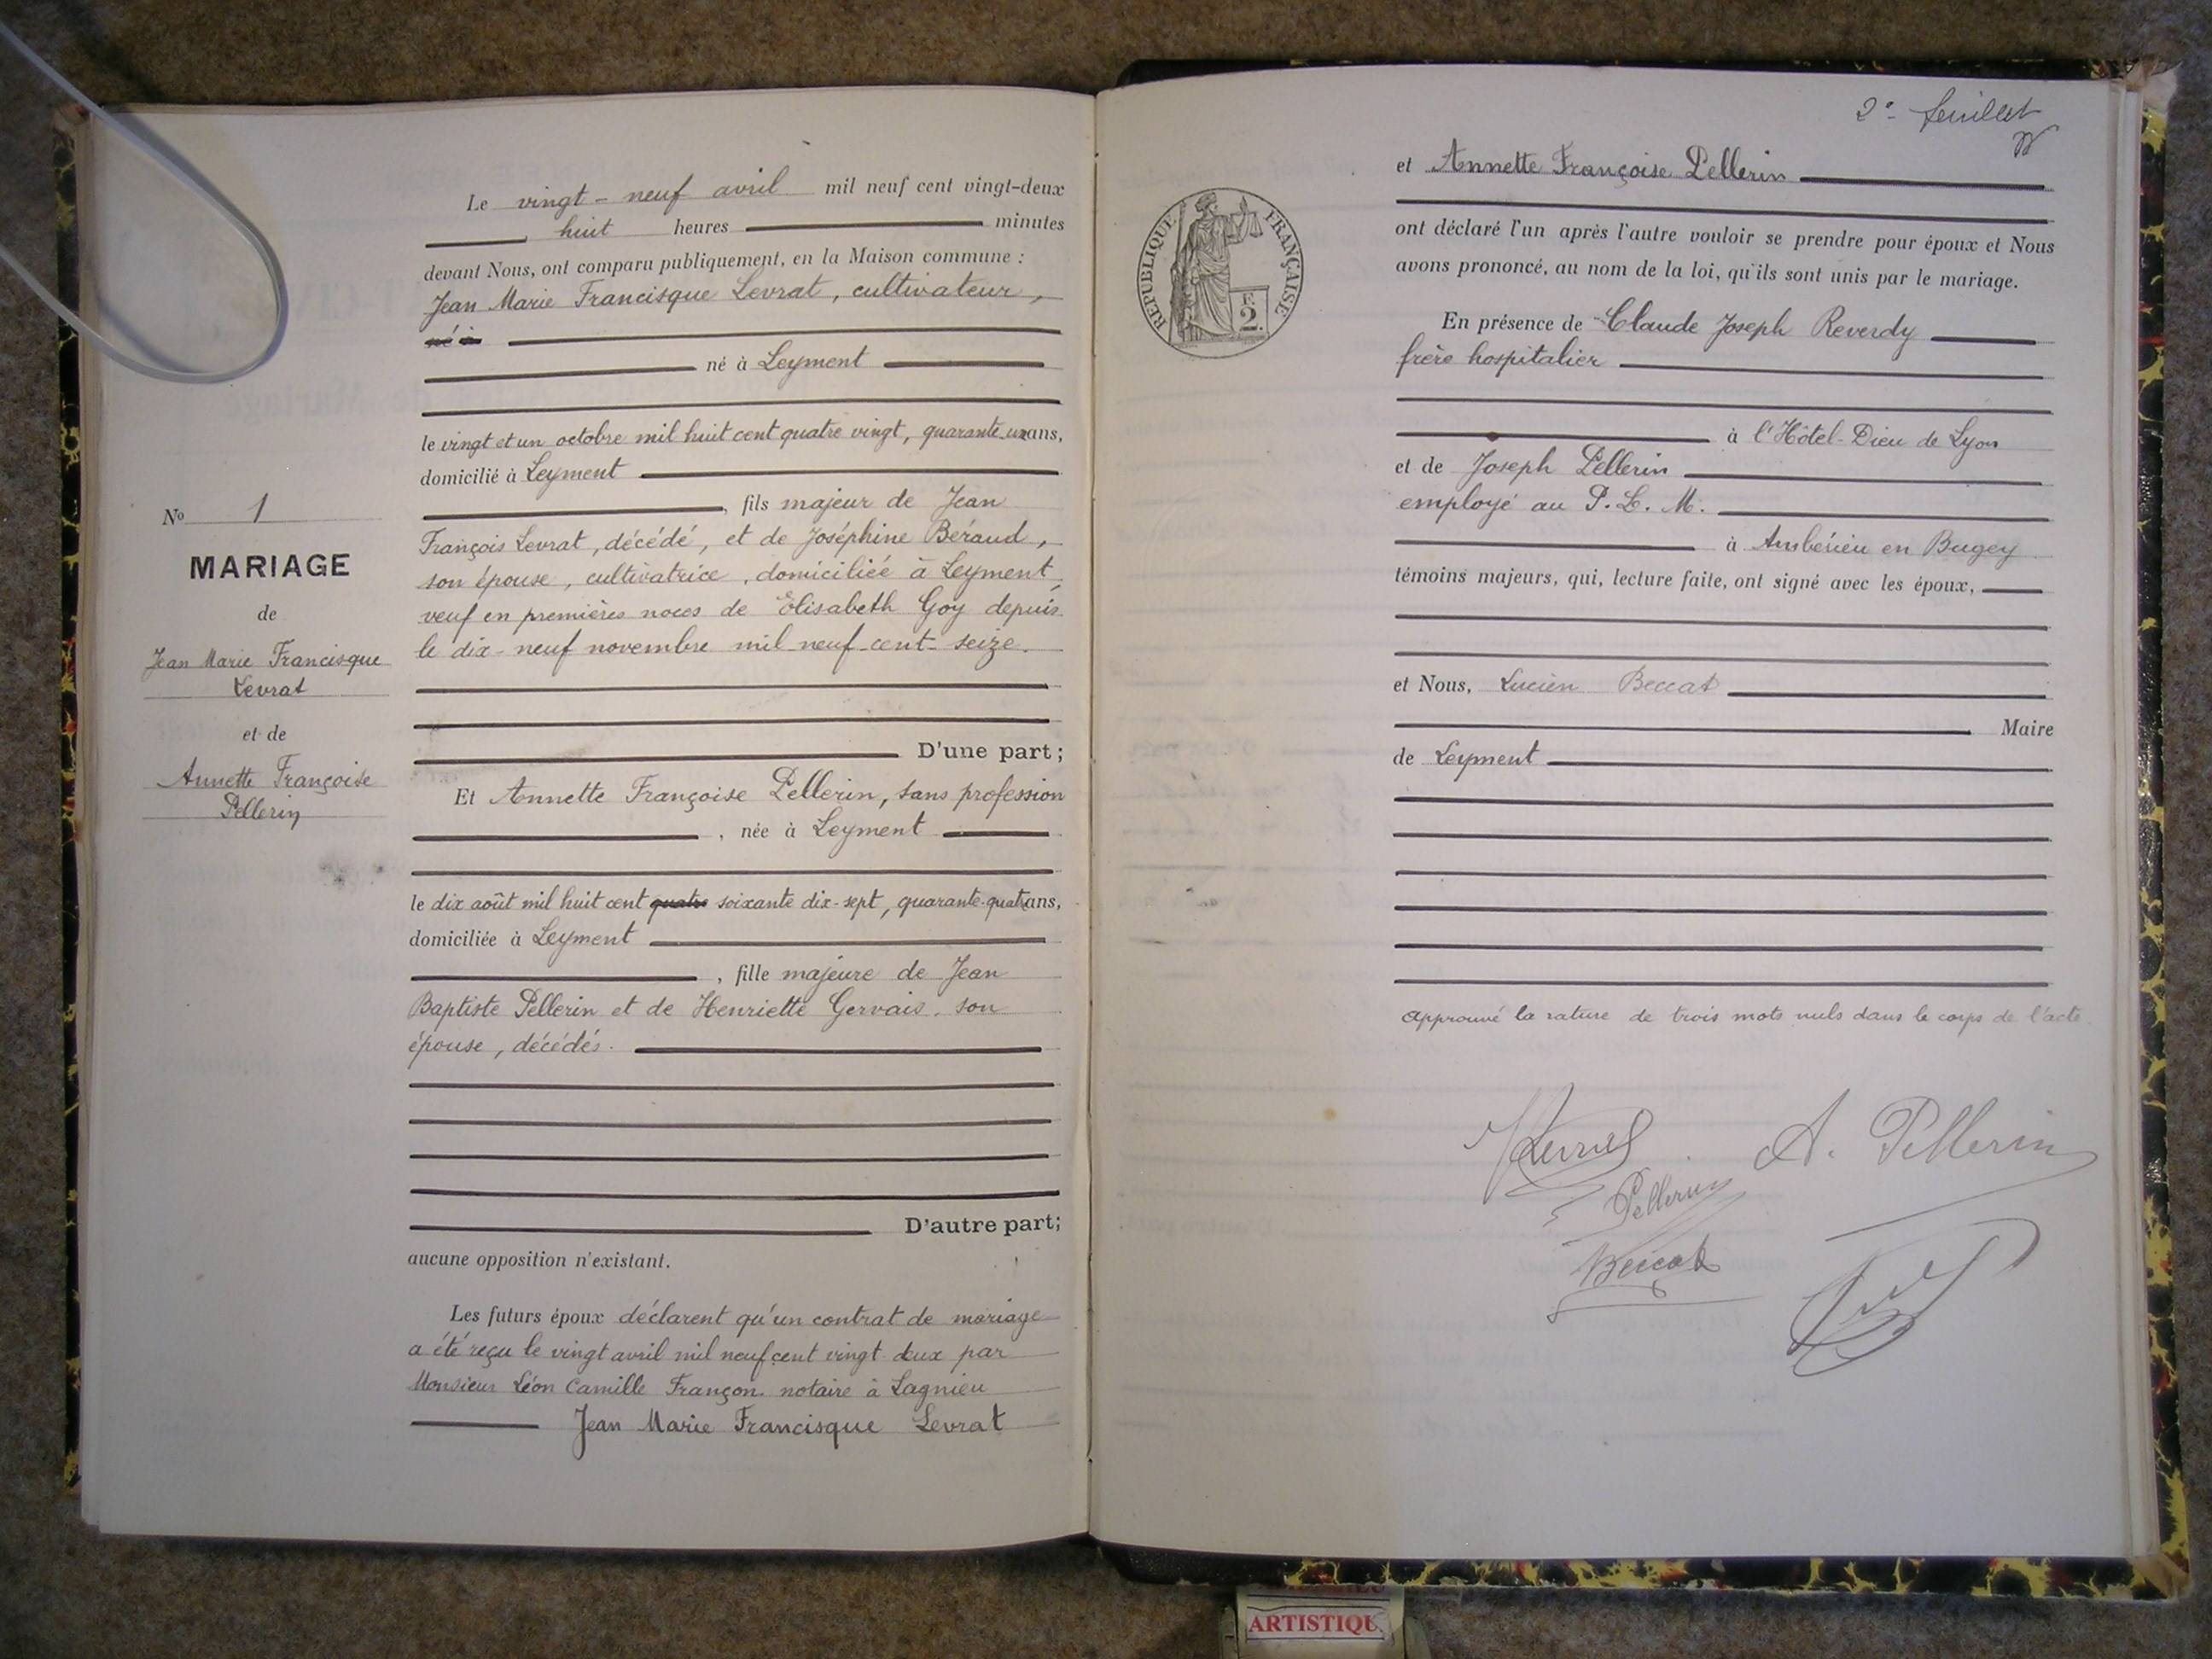 Le vingt-neuf avril mil neuf cent vingt-deux
huit heures minutes
devant Nous, ont comparu publiquement, en la Maison commune :
Jean Marie Francisque Levrat, cultivateur,
né à
né à Leyment
le vingt et un octobre mil huit cent quatre vingt, quarante-un ans,
domicilié à Leyment
, fils majeur de Jean
François Levrat, décédé, et de Joséphine Béraud,
son épouse, cultivatrice, domiciliée à Leyment,
veuf en premières noces de Elisabeth Goy depuis
le dix-neuf novembre mil neuf cent seize.
D'une part ;
Et Annette Françoise Pellerin, sans profession
, née à Leyment
le dix août mil huit cent quatre soixante dix-sept, quarante-quatre ans,
domiciliée à Leyment
, fille majeure de Jean
Baptiste Pellerin et de Henriette Gervais, son
épouse, décédés.
D'autre part;
aucune opposition n'existant.
Les futurs époux déclarent qu'un contrat de mariage
a été reçu le vingt avril mil neuf cent vingt deux par
Monsieur Léon Camille Françon, notaire à Lagnieu
Jean Marie Francisque Levrat
No 1
MARIAGE
de
Jean Marie Francisque
Levrat
et de
Annette Françoise
Pellerin
2e feuillet
et Annette Françoise Pellerin
ont déclaré l'un après l'autre vouloir se prendre pour époux et Nous
avons prononcé, au nom de la loi, qu'ils sont unis par le mariage.
REPUBLIQUE FRANÇAISE
F.
2.
En présence de Claude Joseph Reverdy
frère hospitalier
à l'Hôtel-Dieu de Lyon
et de Joseph Pellerin
employé au P. L. M.
à Ambérieu en Bugey
témoins majeurs, qui, lecture faite, ont signé avec les époux,
et Nous, Lucien Beccat
Maire
de Leyment
Approuvé la rature de trois mots nuls dans le corps de l'acte.
A. Pellerin
Pellerin
Beccat
ARTISTIQU